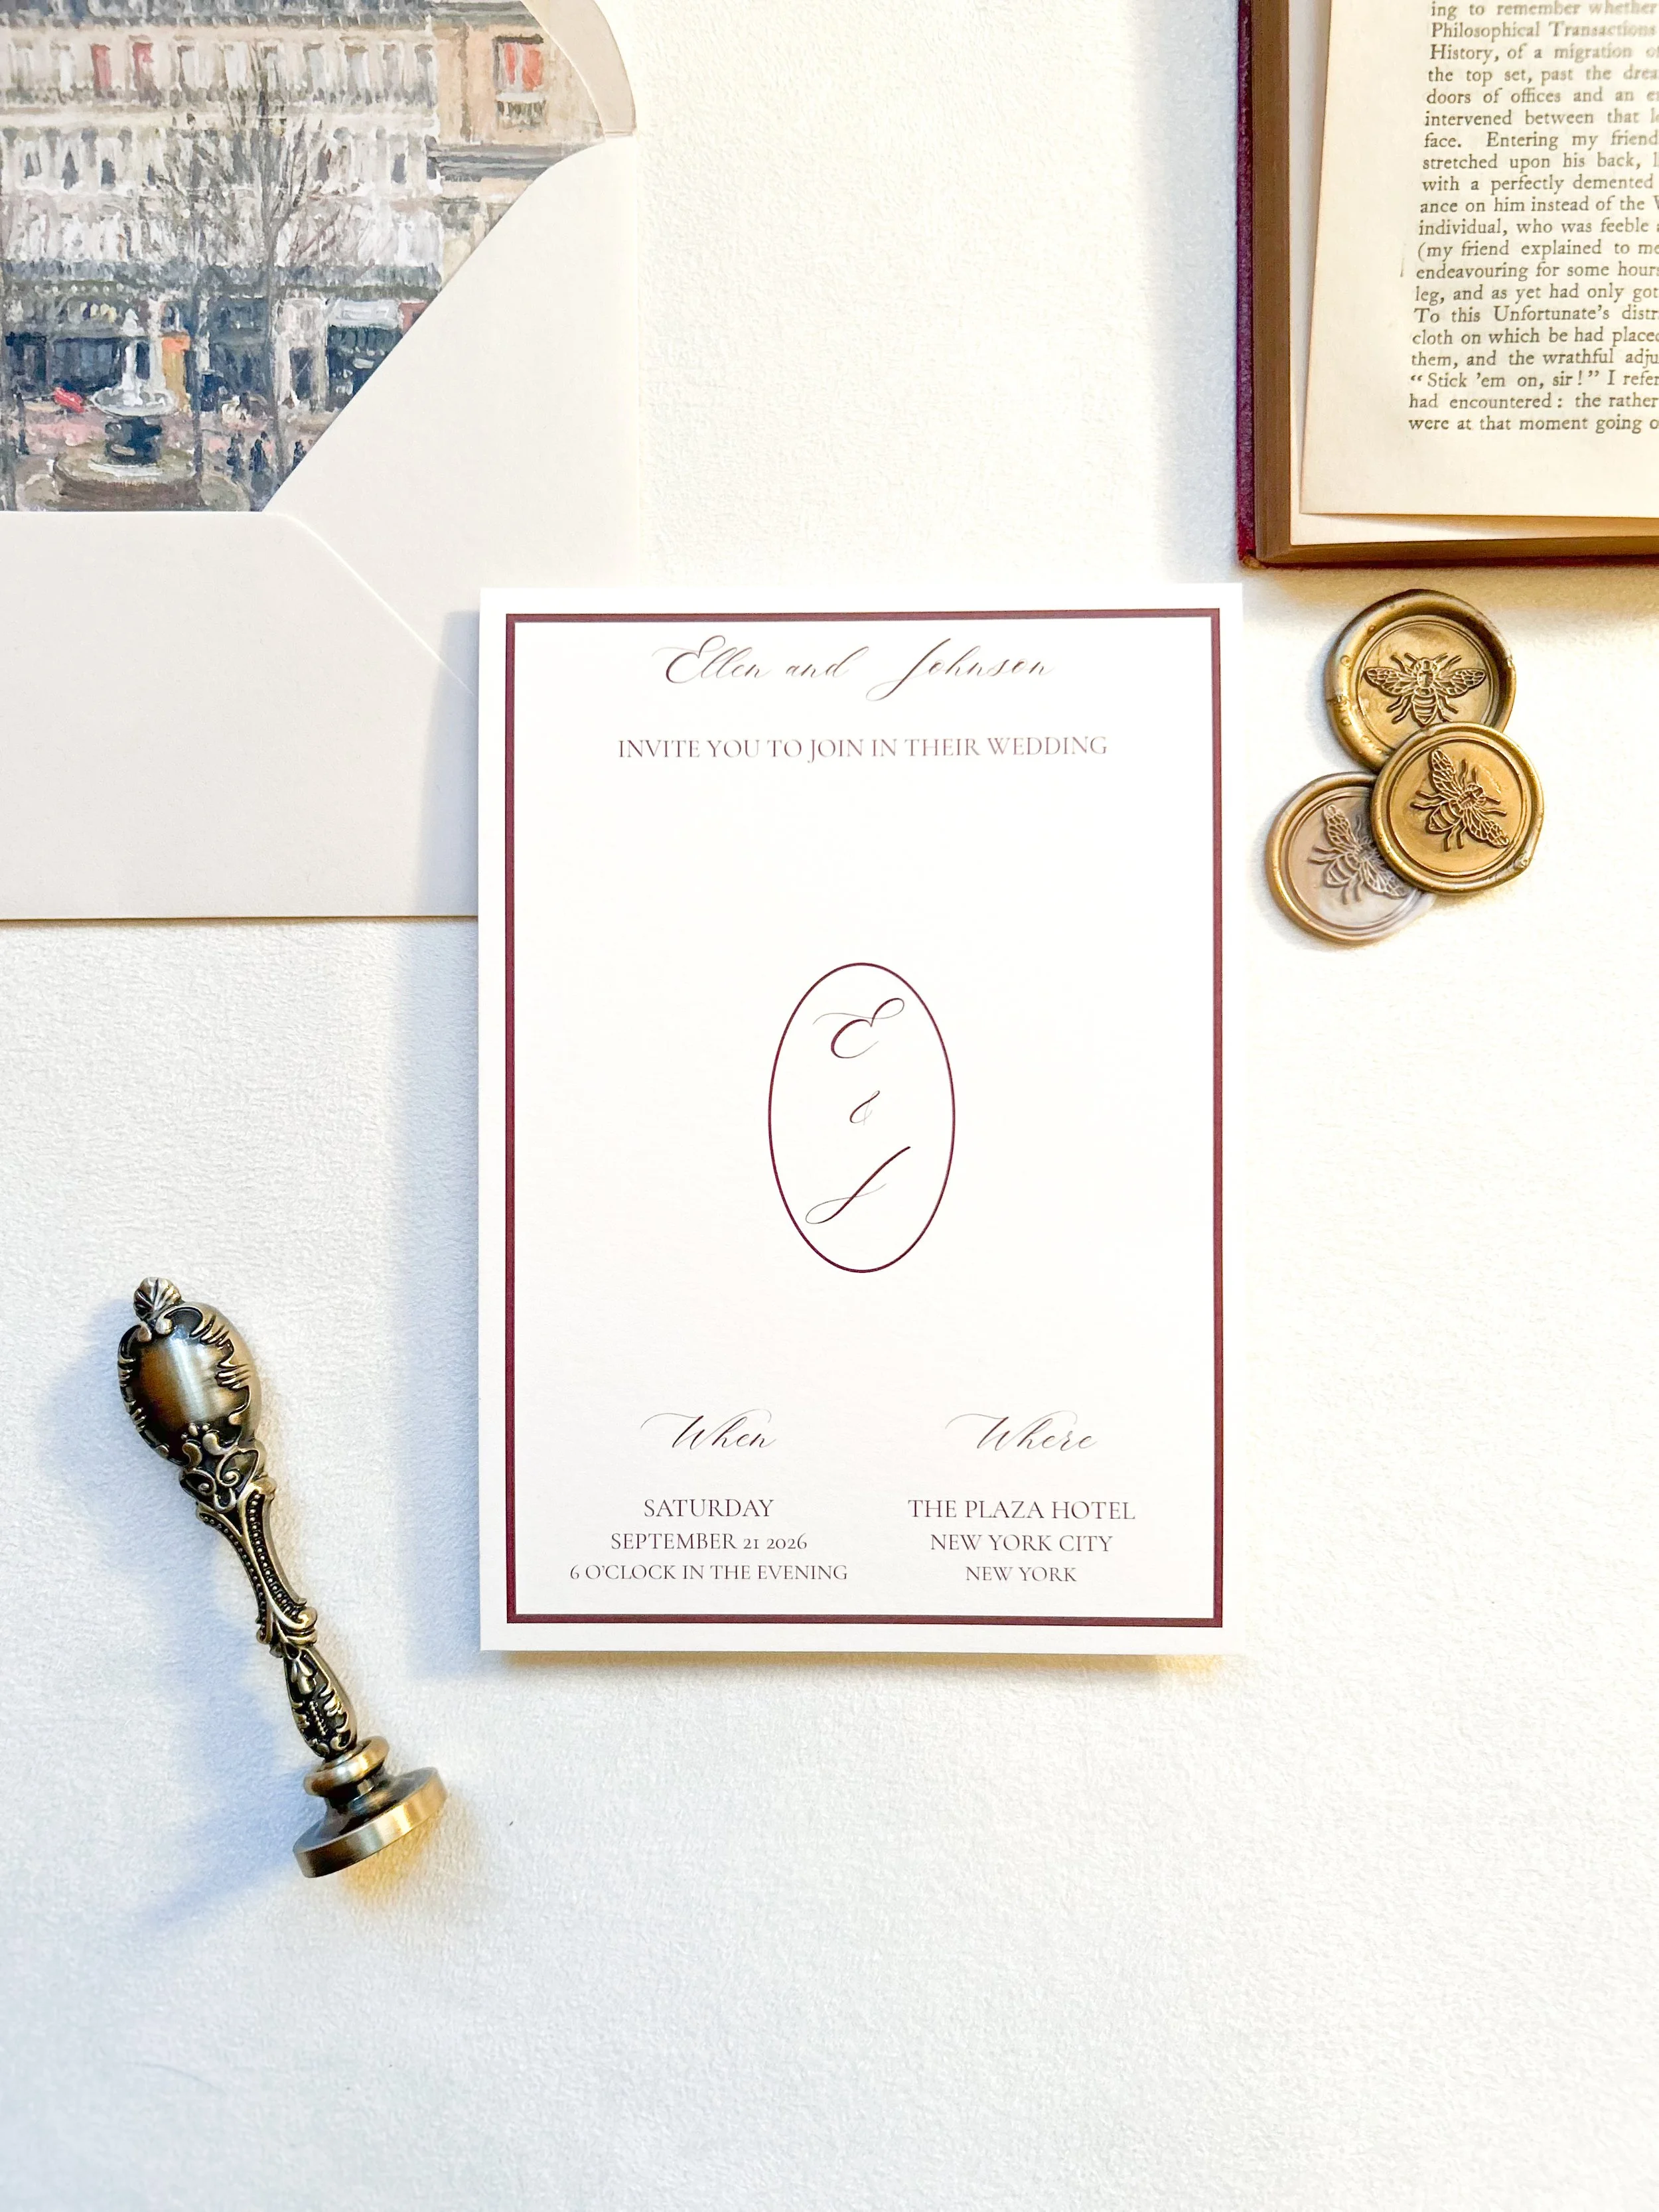 ing to remember whether
Philosophical Transactions
History, of a migration
the top set, past the
doors of offices and an
intervened between that
face. Entering my friend
stretched upon his back,
with a perfectly demented
ance on him instead of the
individual, who was feeble
(my friend explained to me
endeavouring for some hours
leg, and as yet had only got
To this Unfortunate's
cloth on which be had placed
them, and the wrathful
“Stick 'em on, sir!” I
had encountered: the rather
were at that moment going
Ellen and Johnson
INVITE YOU TO JOIN IN THEIR WEDDING
E
&
J
When
SATURDAY
SEPTEMBER 21 2026
6 O'CLOCK IN THE EVENING
Where
THE PLAZA HOTEL
NEW YORK CITY
NEW YORK